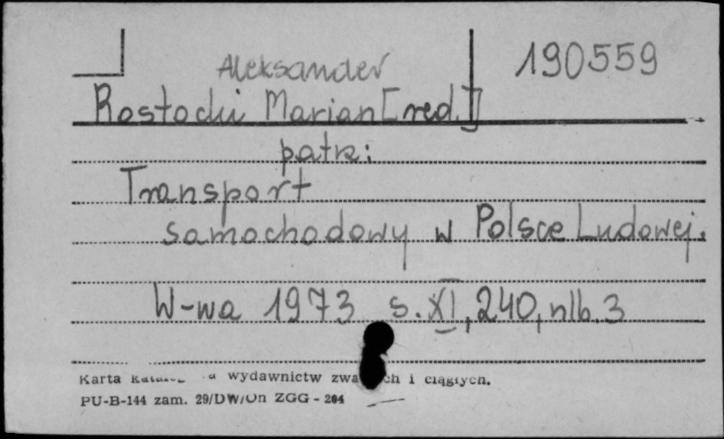 Aleksander 190559
Rostocki Marian [red.]
patrz:
Transport
samochodowy w Polsce Ludowej.
W-wa 1973 s. XI, 240, nlb. 3
Karta wydawnictw i ciągłych.
PU-B-144 zam. 29/DW/On ZGG - 204